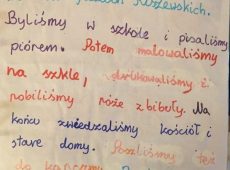 Kiszewskich.
Byliśmy w szkole i pisaliśmy
piórem. Potem malowaliśmy
na szkle, drukowaliśmy i
robiliśmy róże z bibuły. Na
końcu zwiedzaliśmy kościół i
stare domy. Poszliśmy też
do